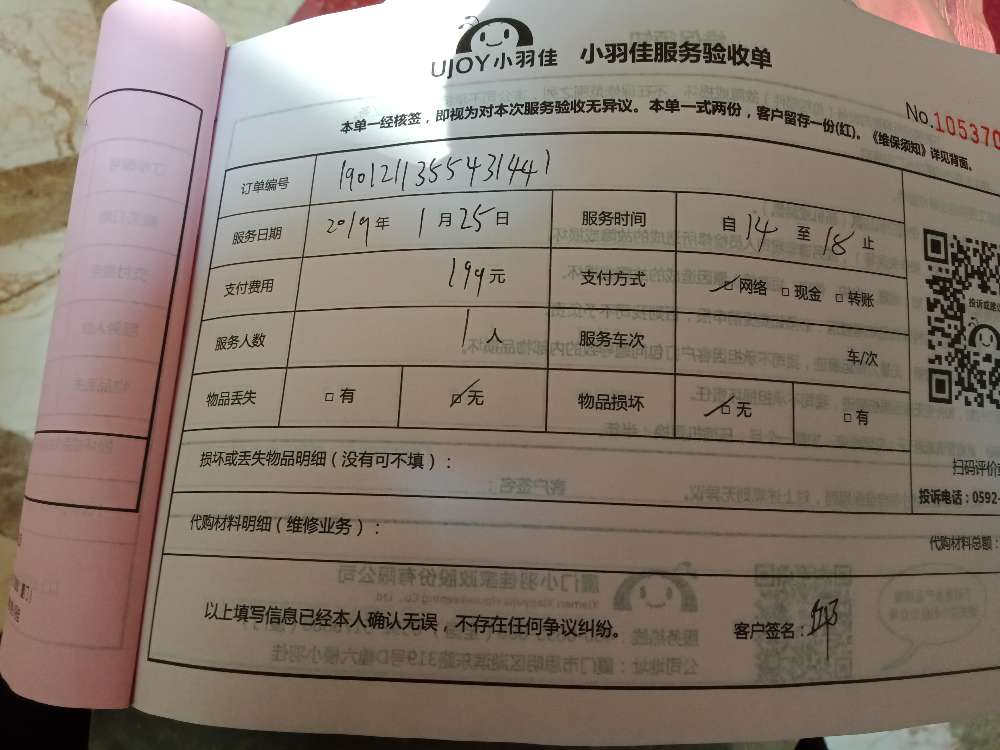 UJOY小羽佳 小羽佳服务验收单
No.105370
本单一经核签，即视为对本次服务验收无异议。本单一式两份，客户留存一份(红)。《维保须知》详见背面。
订单编号 19012113554431441
服务日期 2019年 1月25日 服务时间 自14至18止
支付费用 199元 支付方式 □网络 □现金 □转账
服务人数 1人 服务车次 车/次
物品丢失 □有 □无 物品损坏 □无 □有
损坏或丢失物品明细（没有可不填）：
扫码评价
投诉电话：0592-
代购材料明细（维修业务）：
代购材料总额：
以上填写信息已经本人确认无误，不存在任何争议纠纷。 客户签名：邹